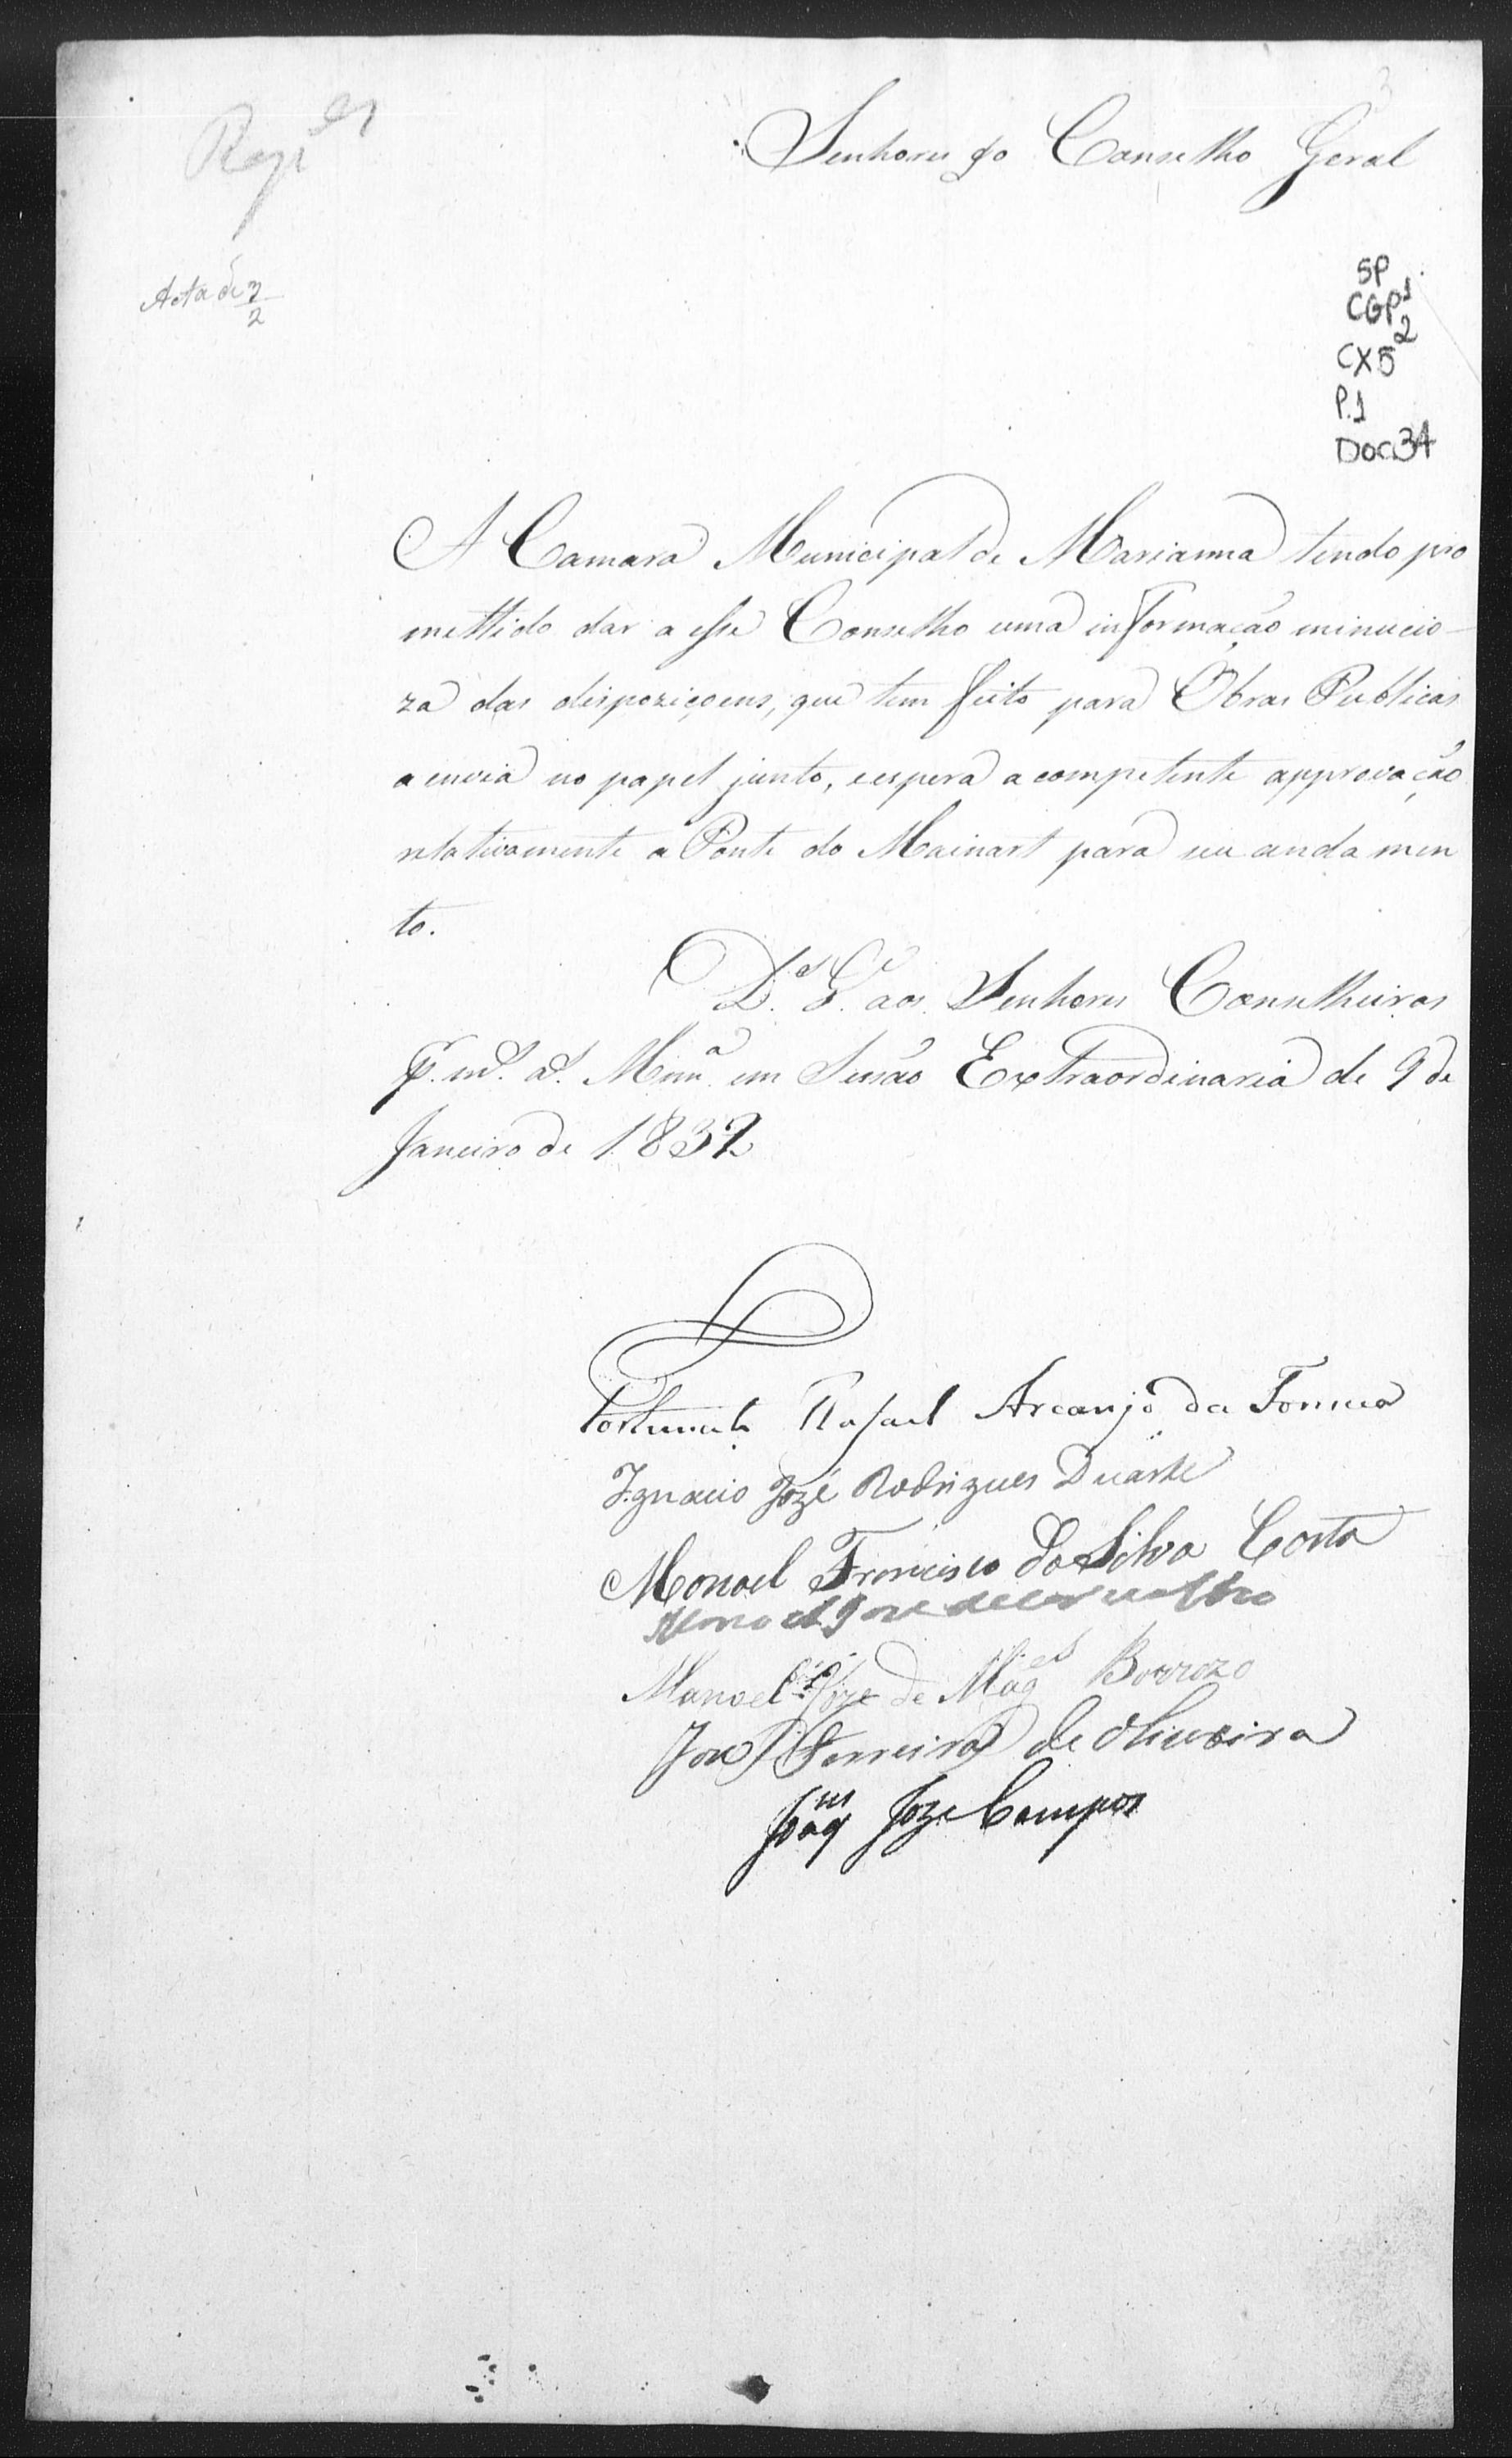 3
Senhores do Conselho Geral
Acta de 7/2
SP
CGP1
CX5 2
P.1
Doc 34
A Camara Municipal de Marianna tendo pro
mettido dar a esse Conselho uma informação minucio-
za das dispoziçoens, que tem feito para Obras Publicas
a envia no papel junto, e espera a competente approvação
relativamente a Ponte do Mainart para seu andamen
to.
D.s G.e aos Senhores Conselheiros
Mun.a em Sessão Extraordinaria de 9 de
Janeiro de 1832
Fortunato Rafael Arcanjo da Fonseca
Ignacio Jozé Rodrigues Duarte
Manoel Francisco da Silva Costa
Manoel Jose de Carvalho
Manoel Joze de Mag.es Barrozo
Joze Ferreira de Oliveira
Joaq.m Joze Campos